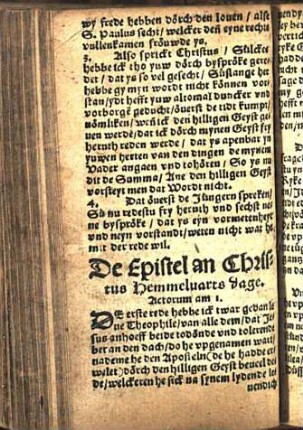 wy frede hebben dörch den louen / alse
S. Paulus secht / welcker den syne rechte
vullenkamen fröuwde ys.
3. Also sprickt Christus / Sülcket
hebbe ick tho yuw dörch byspröke gere-
det / dat ys so vel gesecht / Süslange hir
hebbe gy myn wordt nicht können vor-
stan / ydt hefft yuw altomal duncker vnd
vorborge geducht / öuerst de tidt kumpt /
nömliken / wenn ick den hilligen Geyst ge-
uen werde / dat ick dörch mynen Geyst fry
heruth reden werde / dat ys apenbar yn
yuwen herten van den dingen de mynen
Vader angaen vnd tohören / So ys nu
dit de Summa / Ane den hilligen Geyst
vorsteyt men dat Wordt nicht.
4. Dat öuerst de Jüngern spreken /
Sü nu redestu fry heruth vnd sechst nei-
ne byspröke / dat ys eyn vormetenheyt
vnd neyn vorstandt / weten nicht wat he
mit der rede wil.
De Epistel an Chris-
tus Hemmeluarts dage.
Actorum am 1.
DE erste rede hebbe ick twar gedan le-
ue Theophile / van alle dem / dat Je-
sus anhoeff beide to dönde vnd to lerende
beth an den dach / do he vpgenamen wart /
nademe he den Aposteln (de he hadde er-
welet) dörch den hilligen Geyst beuel de-
de / welckeren he sick na synem lydende le-
uendich